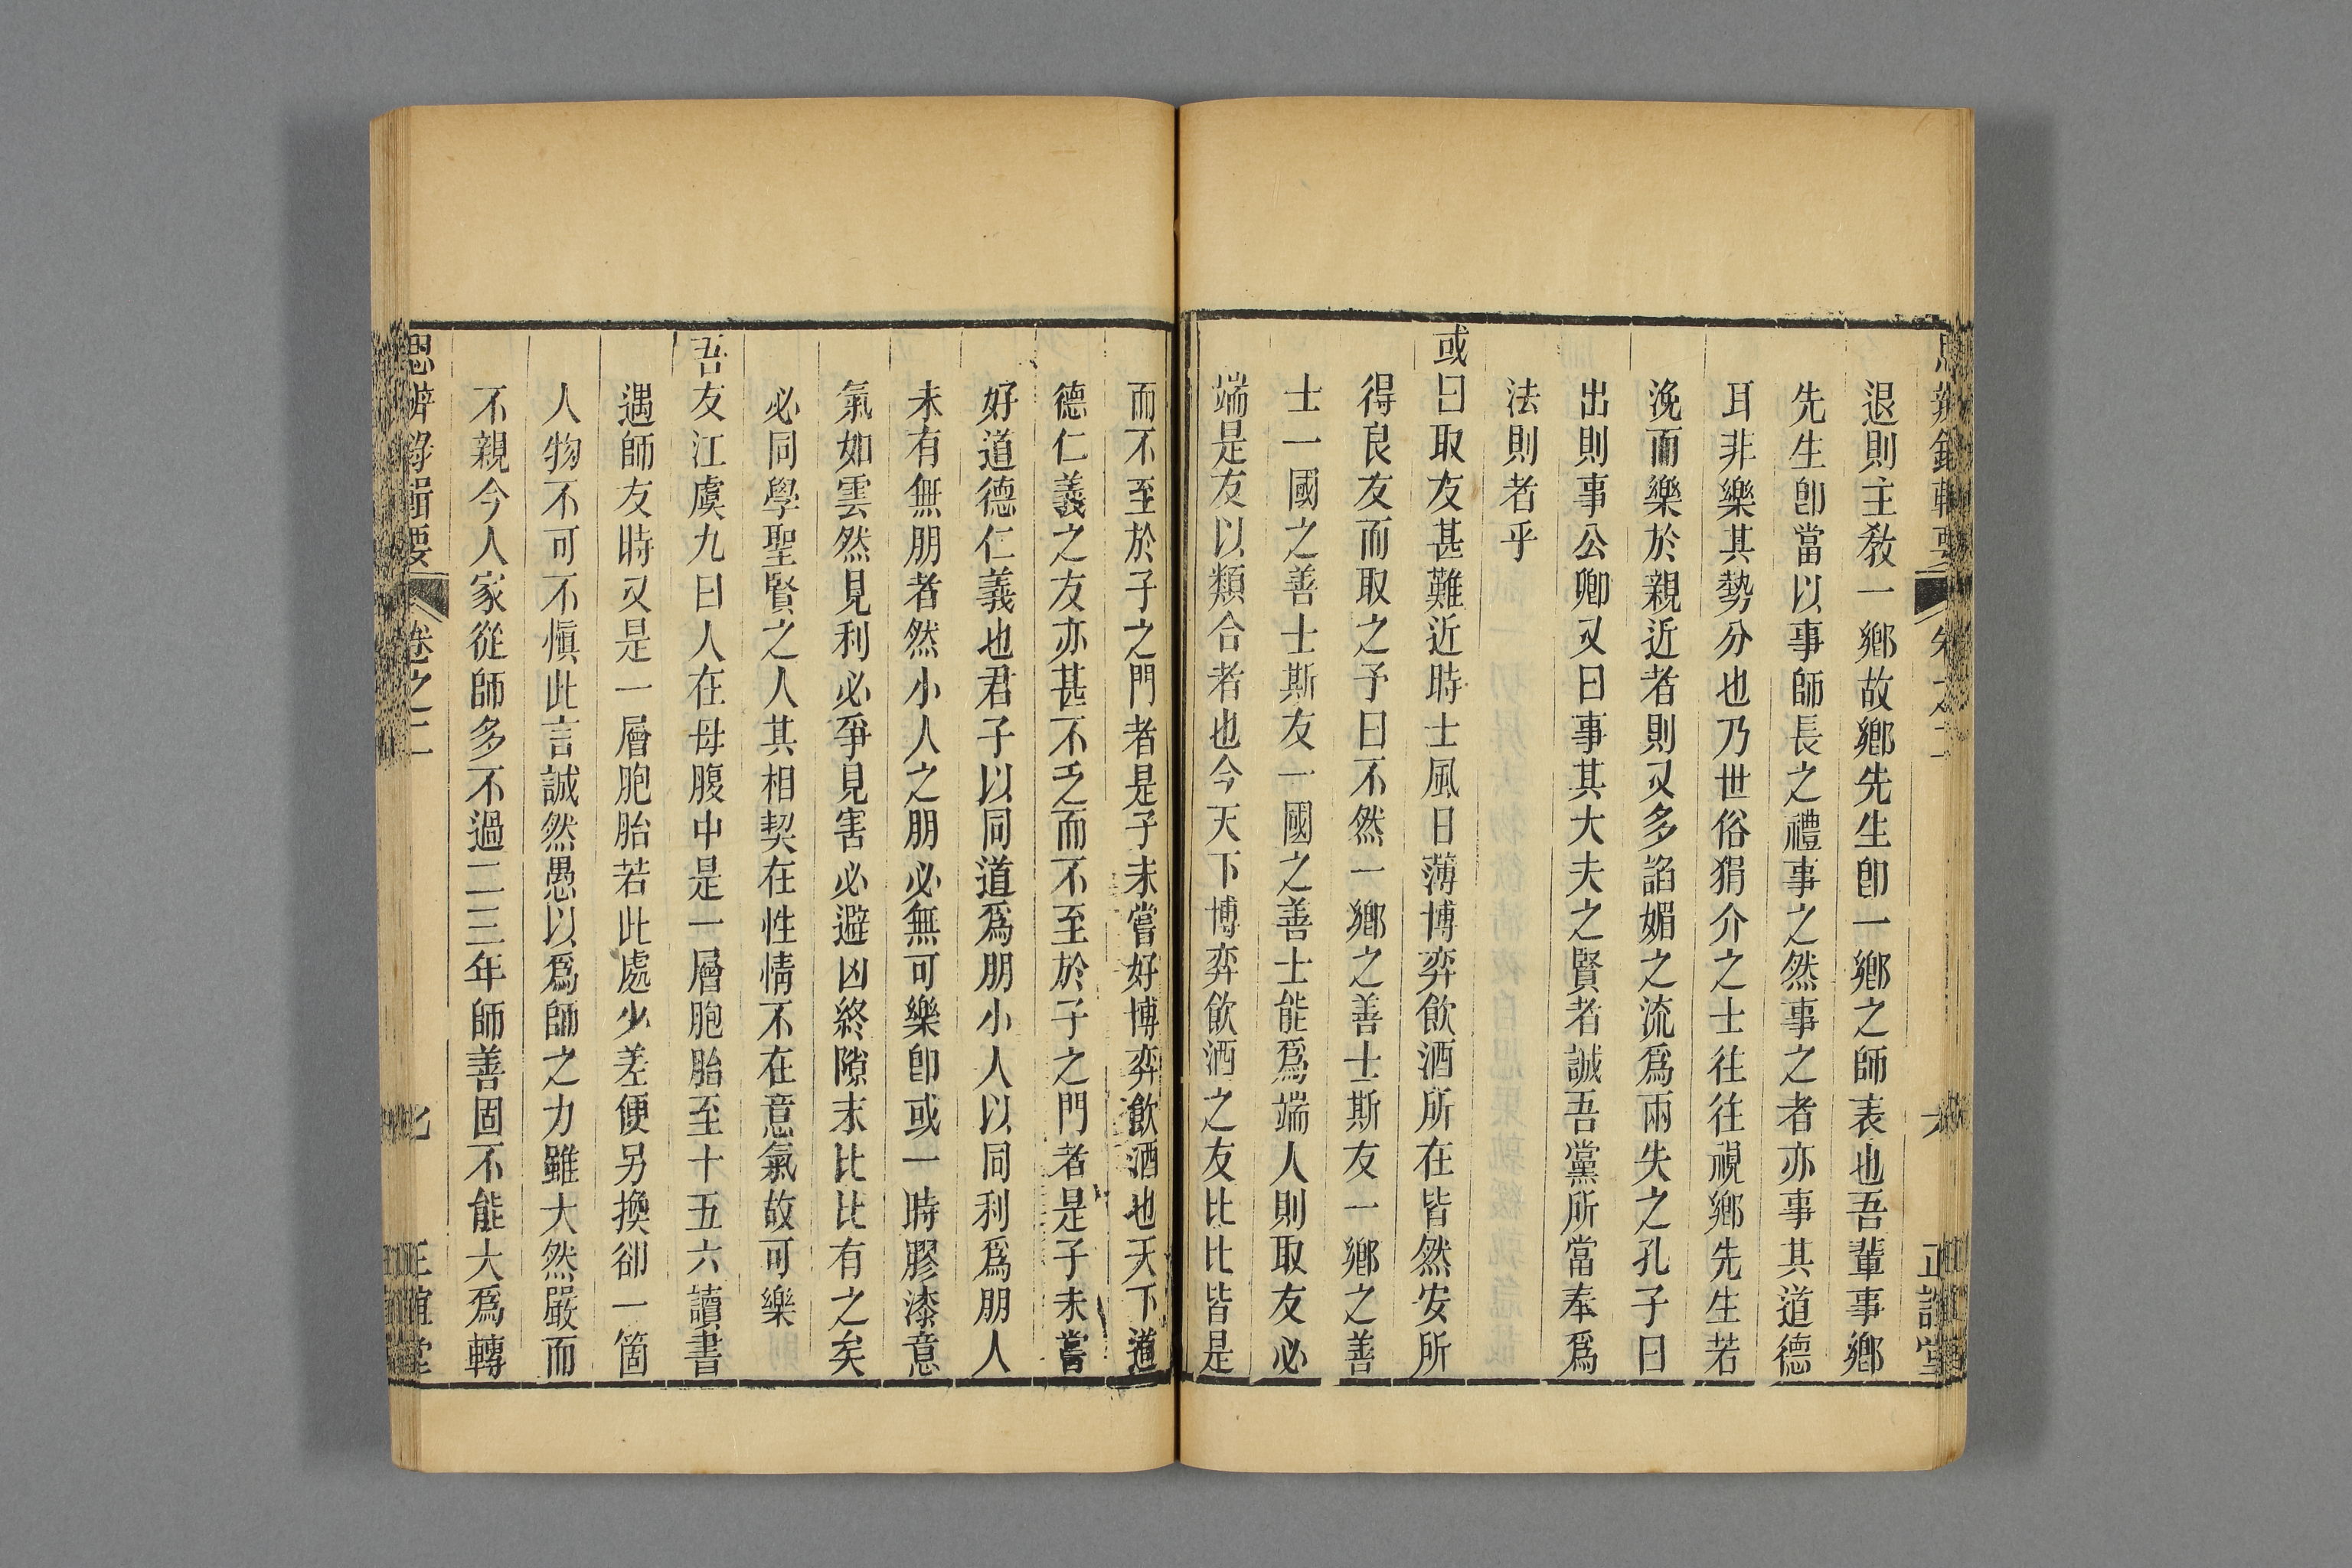 思辨錄輯要 卷之二 六 正誼堂
退則主教一鄉故鄉先生卽一鄉之師表也吾輩事鄉
先生卽當以事師長之禮事之然事之者亦事其道德
耳非樂其勢分也乃世俗狷介之士往往視鄉先生若
浼而樂於親近者則又多諂媚之流爲兩失之孔子曰
出則事公卿又曰事其大夫之賢者誠吾黨所當奉爲
法則者乎
或曰取友甚難近時士風日薄博弈飲酒所在皆然安所
得良友而取之予曰不然一鄉之善士斯友一鄉之善
士一國之善士斯友一國之善士能爲端人則取友必
端是友以類合者也今天下博弈飲酒之友比比皆是
而不至於子之門者是子未嘗好博弈飲酒也天下道
德仁義之友亦甚不乏而不至於子之門者是子未嘗
好道德仁義也君子以同道爲朋小人以同利爲朋人
未有無朋者然小人之朋必無可樂卽或一時膠漆意
氣如雲然見利必爭見害必避凶終隙末比比有之矣
必同學聖賢之人其相契在性情不在意氣故可樂
吾友江虞九曰人在母腹中是一層胞胎至十五六讀書
遇師友時又是一層胞胎若此處少差便另換卻一箇
人物不可不愼此言誠然愚以爲師之力雖大然嚴而
不親今人家從師多不過二三年師善固不能大爲轉
思辨錄輯要 卷之二 七 正誼堂